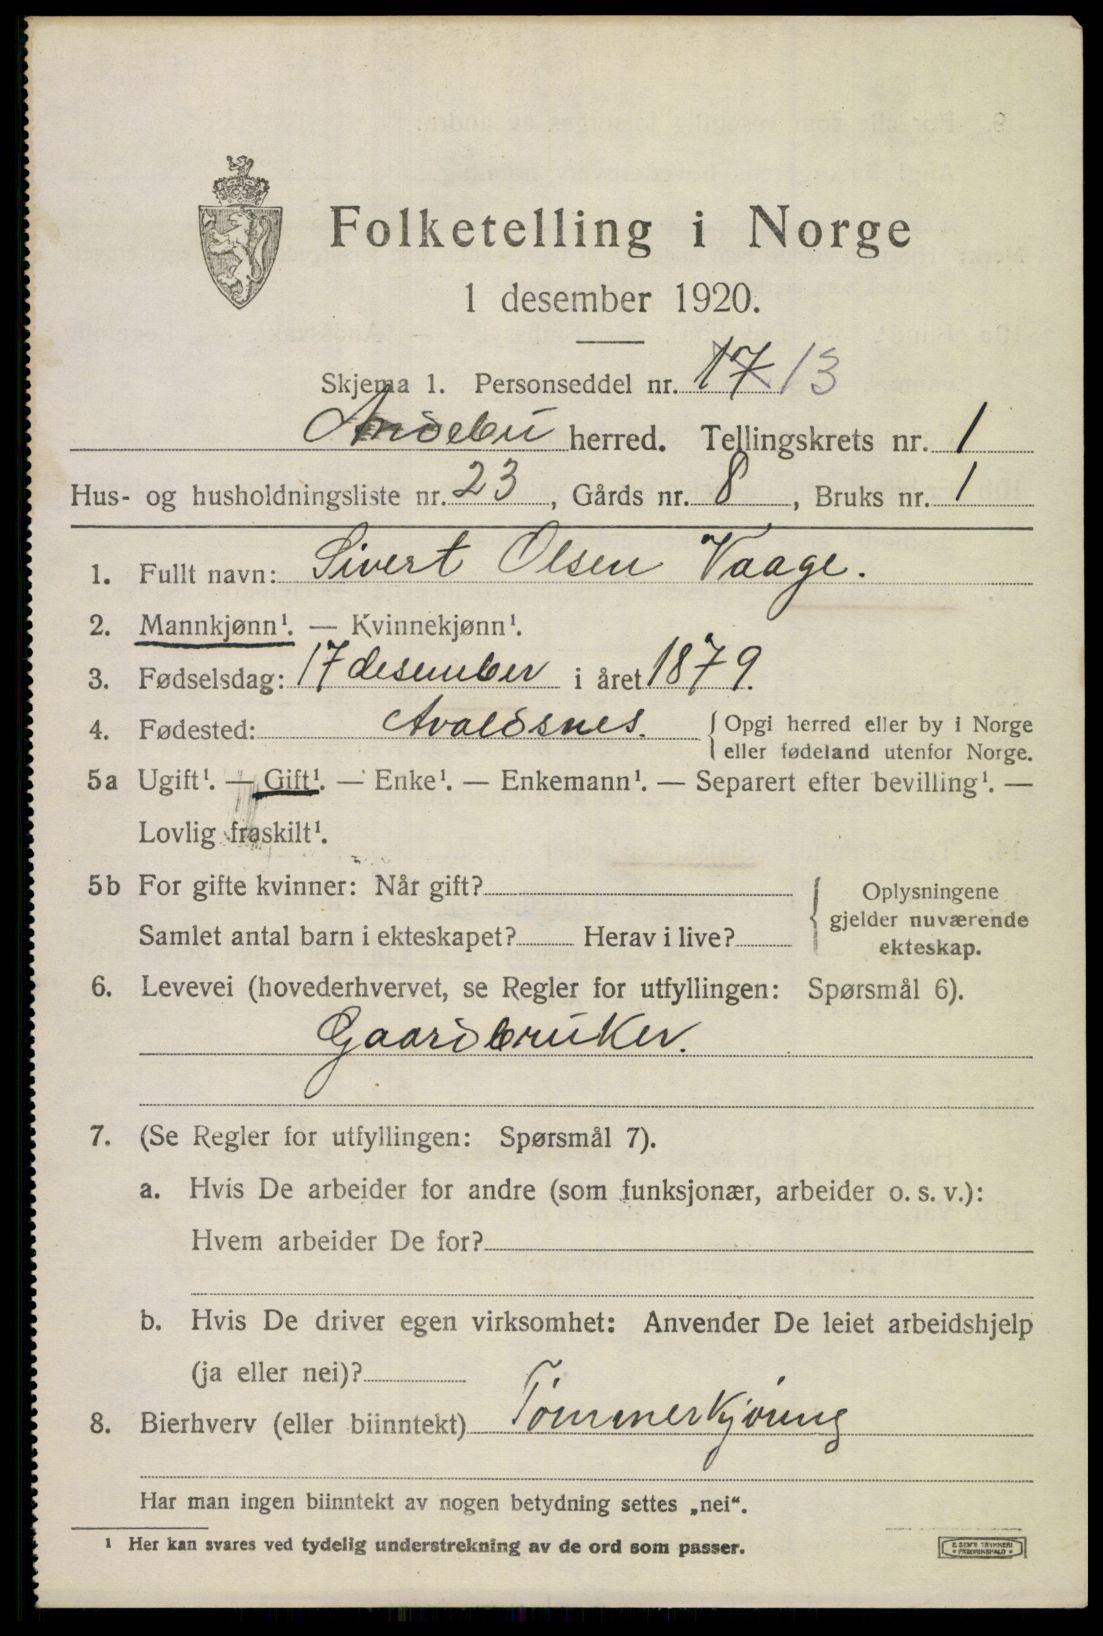 Folketelling i Norge
1 desember 1920.
Skjema 1. Personseddel nr. 17 13
Andebu herred. Tellingskrets nr. 1
Hus- og husholdningsliste nr. 23, Gårds nr. 8, Bruks nr. 1
1. Fullt navn: Sivert Olsen Vaage.
2. Mannkjønn¹. — Kvinnekjønn¹.
3. Fødselsdag: 17 desember i året 1879.
4. Fødested: Avaldsnes. { Opgi herred eller by i Norge
eller fødeland utenfor Norge.
5a Ugift¹. — Gift¹. — Enke¹. — Enkemann¹. — Separert efter bevilling¹. —
Lovlig fraskilt¹.
5b For gifte kvinner: Når gift?
Samlet antal barn i ekteskapet? Herav i live?
{ Oplysningene
gjelder nuværende
ekteskap.
6. Levevei (hovederhvervet, se Regler for utfyllingen: Spørsmål 6).
Gaardbruker.
7. (Se Regler for utfyllingen: Spørsmål 7).
a. Hvis De arbeider for andre (som funksjonær, arbeider o. s. v.):
Hvem arbeider De for?
b. Hvis De driver egen virksomhet: Anvender De leiet arbeidshjelp
(ja eller nei)?
8. Bierhverv (eller biinntekt) Tømmerkjøring
Har man ingen biinntekt av nogen betydning settes „nei“.
¹ Her kan svares ved tydelig understrekning av de ord som passer.
TRYKKERI
FREDRIKSHALD